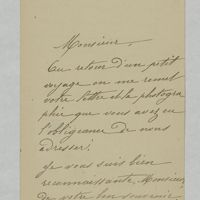 Monsieur,
Au retour d'un petit
voyage on me remet
votre lettre et la photogra
phie que vous avez eu
l'obligeance de nous
adresser.
Je vous suis bien
reconnaissante, Monsieur,
de votre bon souvenir